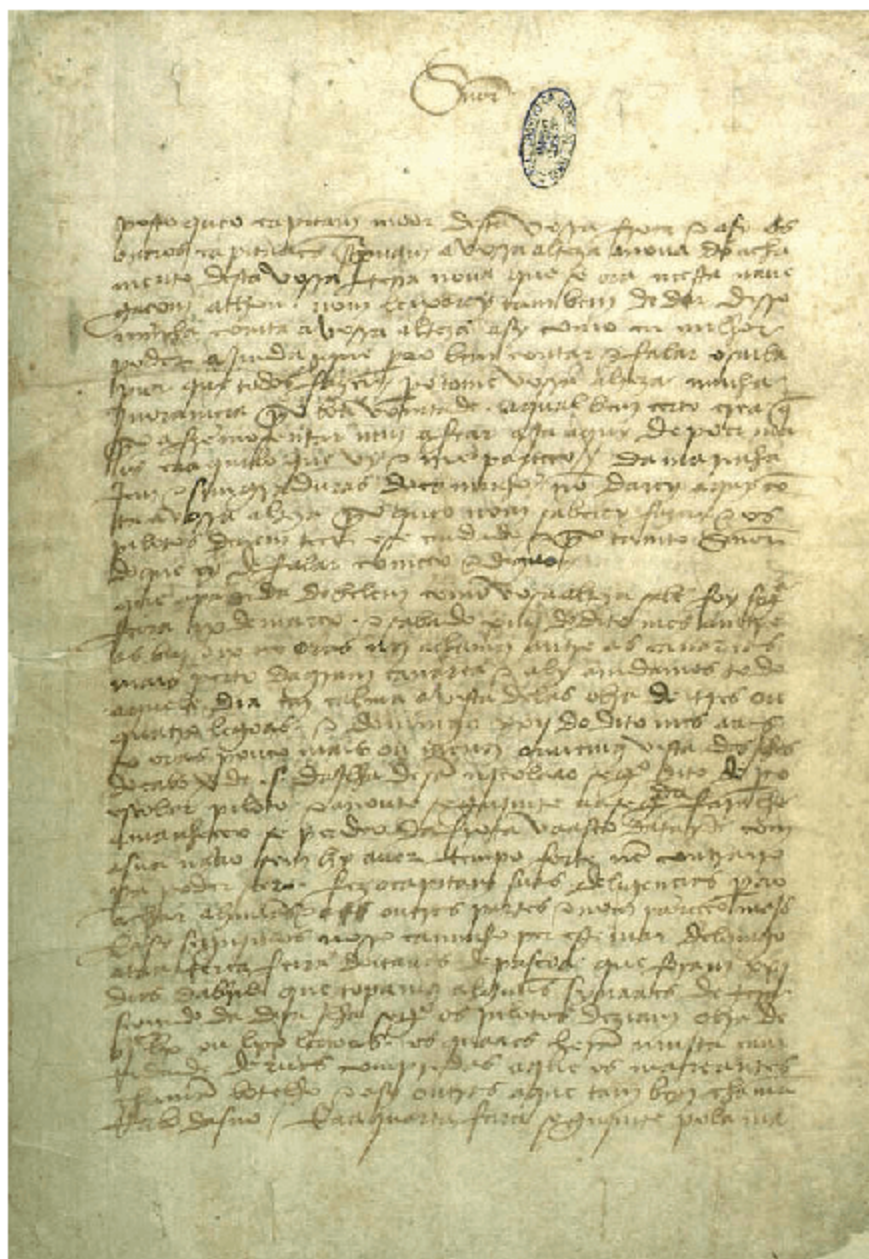 Snor
posto que o capitam moor desta vossa frota e asy os
outros capitaães screpuam a vossa alteza a noua do acha
mento desta vossa terra noua que se ora neesta naue
gaçom achou. nom leixarey tambem de dar disso
minha comta a vossa alteza asy como eu milhor
poder ajmda que pera o bem contar e falar o saiba
pior que todos fazer. pero tome vossa alteza minha
jnoramçia por boa vomtade. a qual bem certo crea q̃
por afremosentar nem afear aja aquy de poer ma
is ca aquilo que vy e me pareceo. da marinha
jem e simgraduras do caminho nõ darey aquy cõ
ta a vossa alteza por que o nom saberey fazer e os
pilotos deuem teer ese cuidado e por tanto Snor
do que ey de falar começo e diguo
que a partida de belem como vosa alteza sabe foy segª
feira ix de março. e sabado xiiij do dito mes amtre
as biij e ix oras nos achamos antre as canareas
mais perto da gram canarea e aly amdamos todo
aquele dia em calma a vista delas obra de tres ou
quatro legoas. e domingo xxij do dito mes aas
x oras pouco mais ou menos ouuemos vista das jlhas
do cabo verde .s. da jlha de sã njcolaao segº dito de pero
escolar piloto. e a noute segujmte aa segª feira lhe
amanheceo se perdeo da frota vaasco datayde com
a sua naao sem hy auer tempo forte nẽ contrairo
pera poder seer. fez o capitam suas deligençias pera o
achar a huũas e outras partes e nom pareceo majs
E asy segujmos nosso caminho per este mar delomgo
ataa terça feira doitauas de pascoa que foram xxj
dias dabril que topamos alguũs synaaes de tera
seemdo da dita jlha segº os pilotos deziam obra de
bjc lx ou lxx legoas. os quaaes herã mujta cam
tidade deruas compridas a que os mareantes
chamã botelho e asy outras a que tambem chamã
Rabo dasno. E aa quarta feira segujmte pola ma